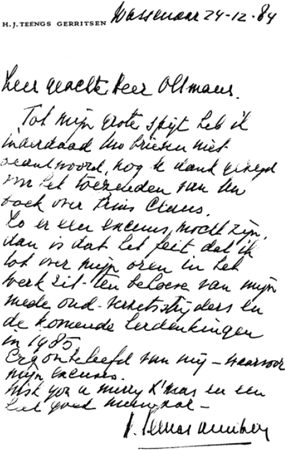 H. J. TEENGS GERRITSEN
Wassenaar 24-12-84
Zeer geachte Heer Oltmans,
Tot mijn grote spijt heb ik
inderdaad Uw brieven niet
beantwoord, nog U dank gezegd
voor het toezenden van Uw
boek over Prins Claus.
Zo er een excuus, mocht zijn,
dan is dat het feit dat ik
tot over mijn oren in het
werk zit ten behoeve van mijn
mede oud-verzetsstrijders en
de komende herdenkingen
in 1985.
Erg onbeleefd van mij – waarvoor
mijn excuses.
Wish you a merry X'mas en een
heel goed nieuwjaar –